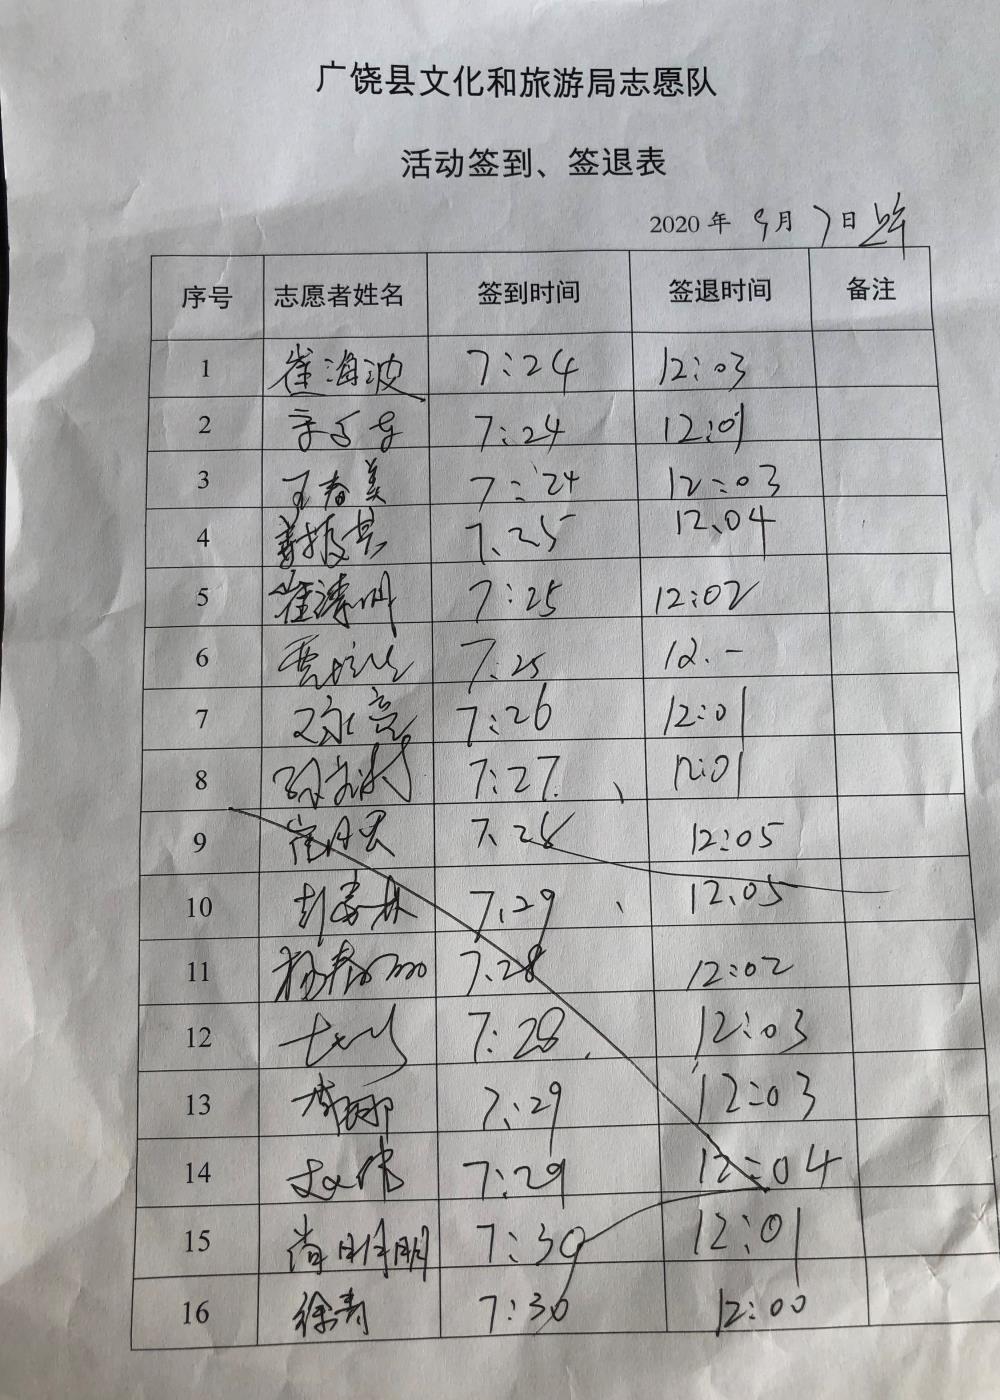 广饶县文化和旅游局志愿队
活动签到、签退表
2020 年 9月 7日 上午
序号 志愿者姓名 签到时间 签退时间 备注
1 崔海波 7:24 12:03
2 7:24 12:01
3 王春美 7:24 12:03
4 7.25 12.04
5 7:25 12:02
6 7:25 12.
7 7:26 12:01
8 7:27 12:01
9 7.28 12:05
10 7.29 12.05
11 7.28 12:02
12 7:28 12:03
13 李娜 7:29 12:03
14 赵伟 7:29 12:04
15 尚明明 7:30 12:01
16 徐青 7:30 12:00